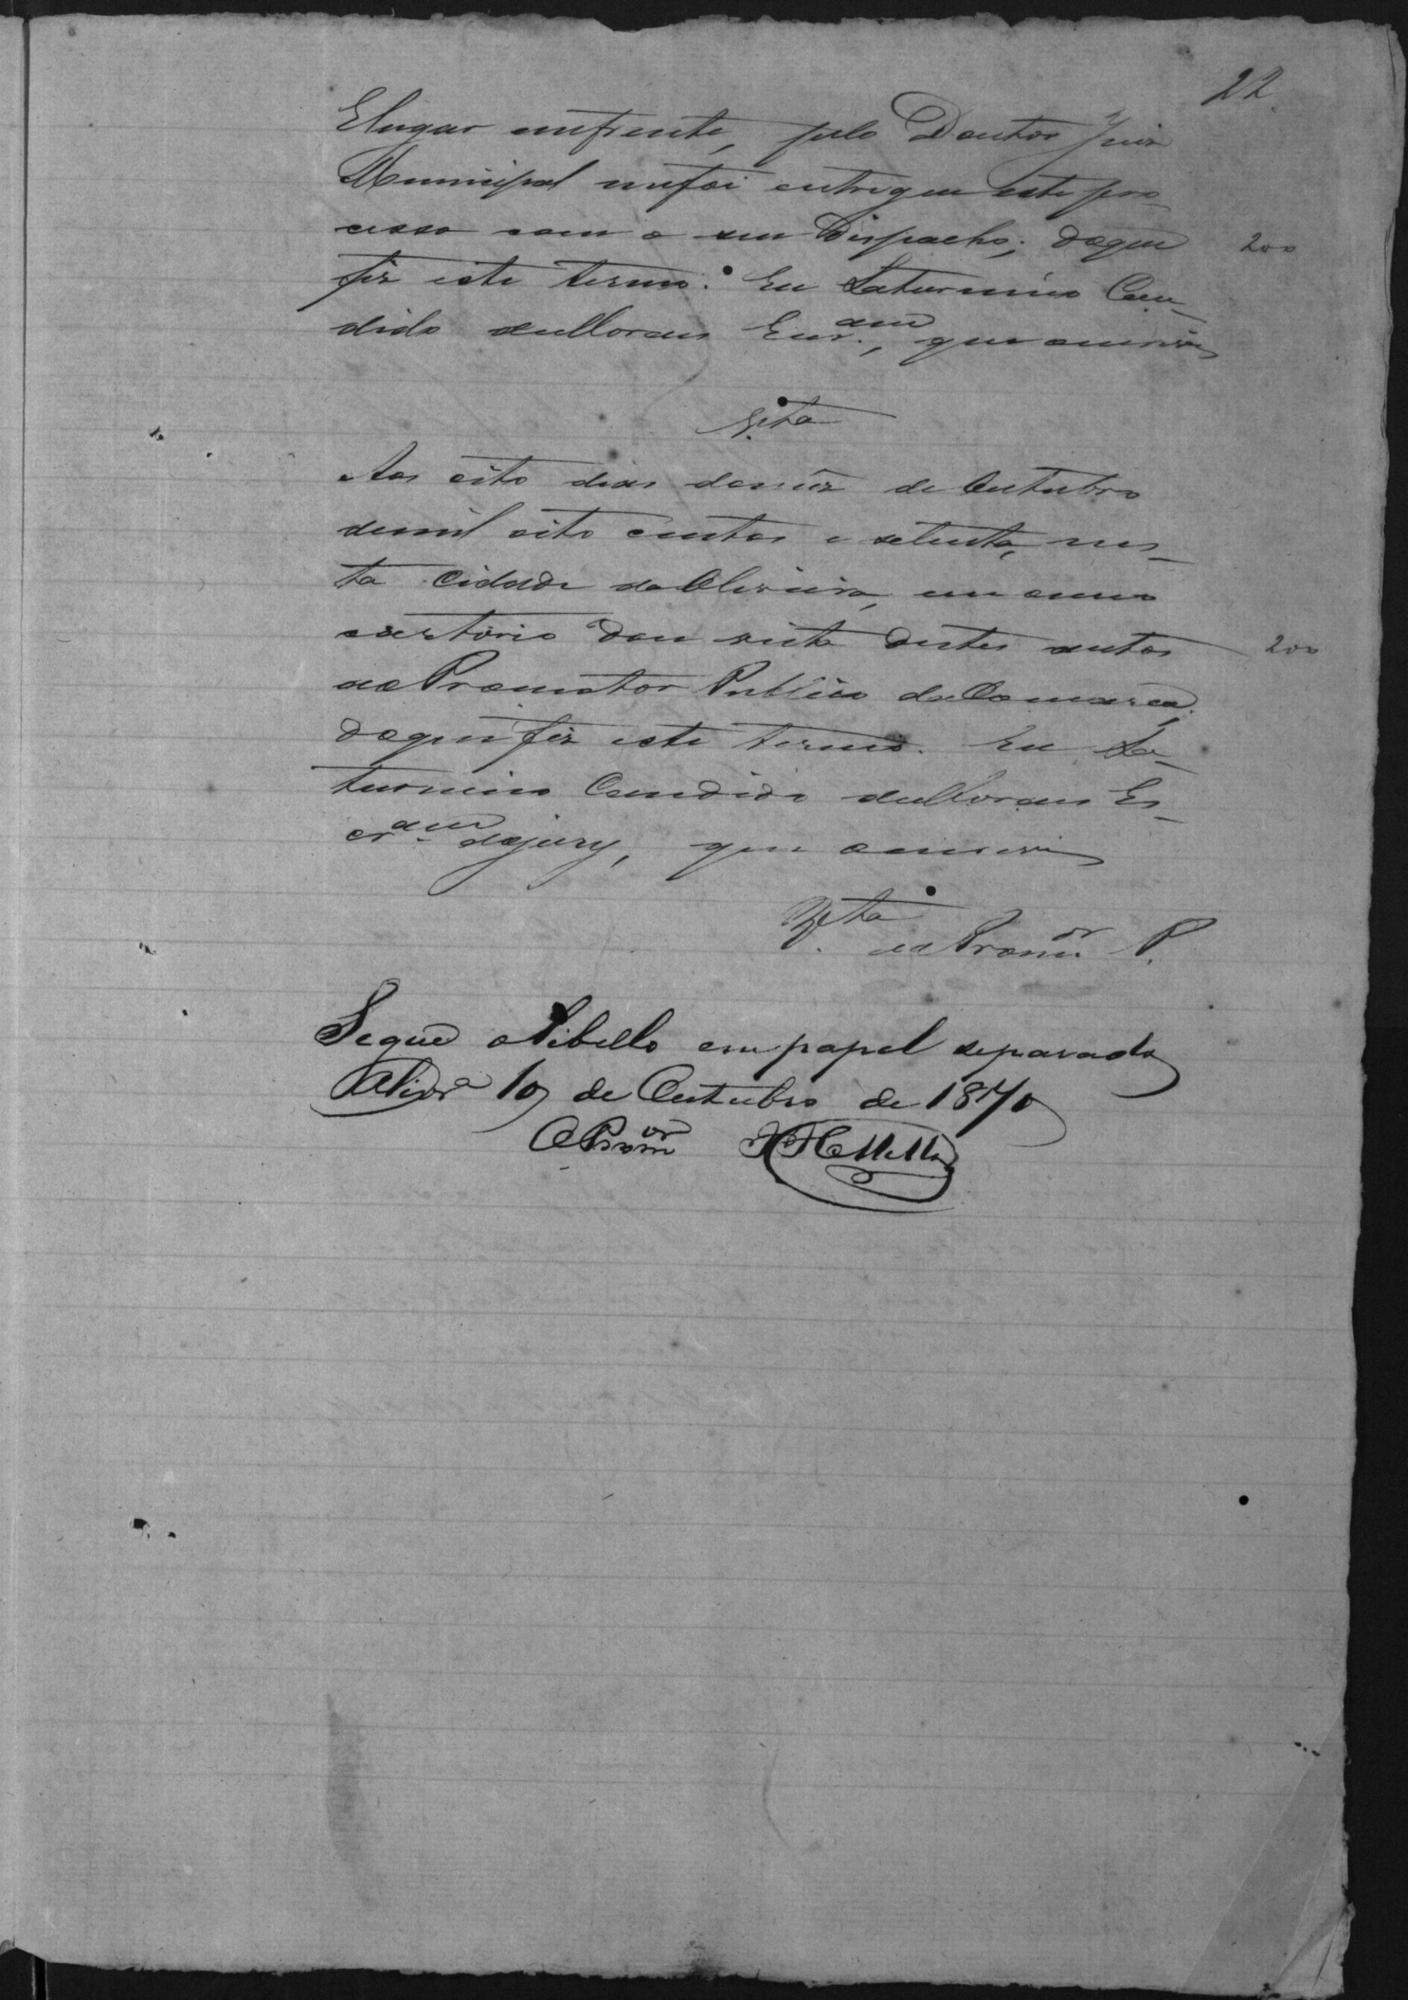 22
E lugar emfrente, pelo Doutor Juiz
Municipal mefoi entregue este pro
cesso com o seu Dispacho; doque 200
fiz este termo. Eu Saturnino Can-
dido deMoraes Escr.am, que escrevi
V.ta
Aos oito dias domez de Outubro
demil oito centos e setenta, nes-
ta Cidade daOliveira, em meu
cartorio dou vista destes autos 200
aoPromotor Publico daComarca;
doque fiz este termo. Eu Sa-
turnino Candido deMoraes Es-
cr.am dojury, que escrevi
V.ta
ao Prom.or P.
Segue o Libello em papel separado
Olivr.a 10 de Outubro de 1870
O Prom.or